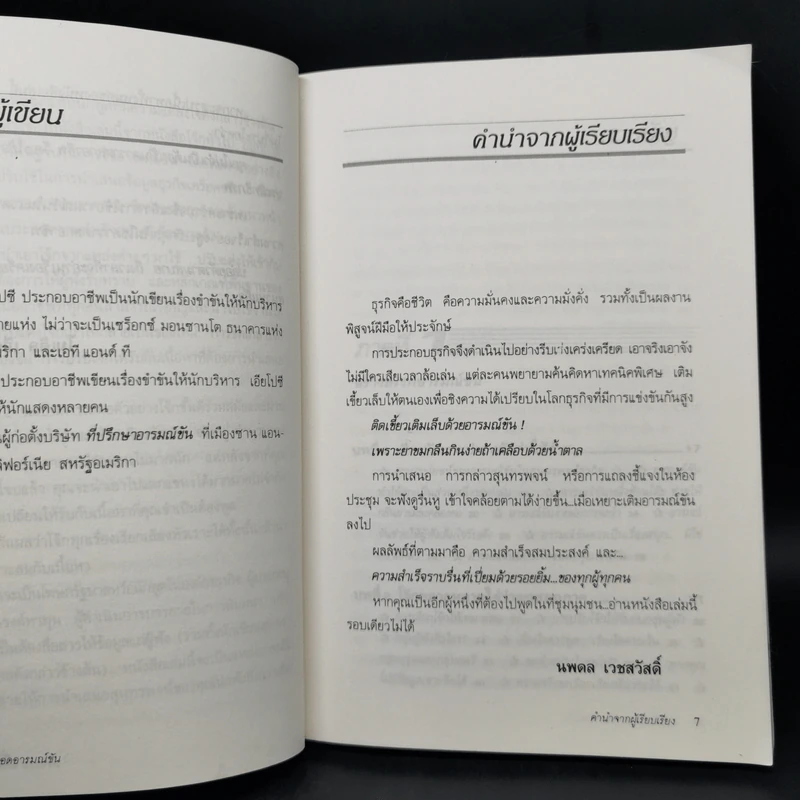 ผู้เขียน
ประกอบอาชีพเป็นนักเขียนเรื่องขำขันให้นักบริหาร
ไม่ว่าจะเป็นเซร็อกซ์ มอนซานโต ธนาคารแห่ง
และเอที แอนด์ ที
ประกอบอาชีพเขียนเรื่องขำขันให้นักบริหาร เอียโปซี
ให้นักแสดงหลายคน
ผู้ก่อตั้งบริษัท ที่ปรึกษาอารมณ์ขัน ที่เมืองซาน แอน-
สหรัฐอเมริกา
คำนำจากผู้เรียบเรียง
ธุรกิจคือชีวิต คือความมั่นคงและความมั่งคั่ง รวมทั้งเป็นผลงาน
พิสูจน์ฝีมือให้ประจักษ์
การประกอบธุรกิจจึงดำเนินไปอย่างรีบเร่งเคร่งเครียด เอาจริงเอาจัง
ไม่มีใครเสียเวลาล้อเล่น แต่ละคนพยายามค้นคิดหาเทคนิคพิเศษ เติม
เขี้ยวเล็บให้ตนเองเพื่อชิงความได้เปรียบในโลกธุรกิจที่มีการแข่งขันกันสูง
ติดเขี้ยวเติมเล็บด้วยอารมณ์ขัน !
เพราะยาขมกลืนกินง่ายถ้าเคลือบด้วยน้ำตาล
การนำเสนอ การกล่าวสุนทรพจน์ หรือการแถลงชี้แจงในห้อง
ประชุม จะฟังดูรื่นหู เข้าใจคล้อยตามได้ง่ายขึ้น...เมื่อเหยาะเติมอารมณ์ขัน
ลงไป
ผลลัพธ์ที่ตามมาคือ ความสำเร็จสมประสงค์ และ...
ความสำเร็จราบรื่นที่เปี่ยมด้วยรอยยิ้ม...ของทุกผู้ทุกคน
หากคุณเป็นอีกผู้หนึ่งที่ต้องไปพูดในที่ชุมนุมชน...อ่านหนังสือเล่มนี้
รอบเดียวไม่ได้
นพดล เวชสวัสดิ์
คำนำจากผู้เรียบเรียง 7